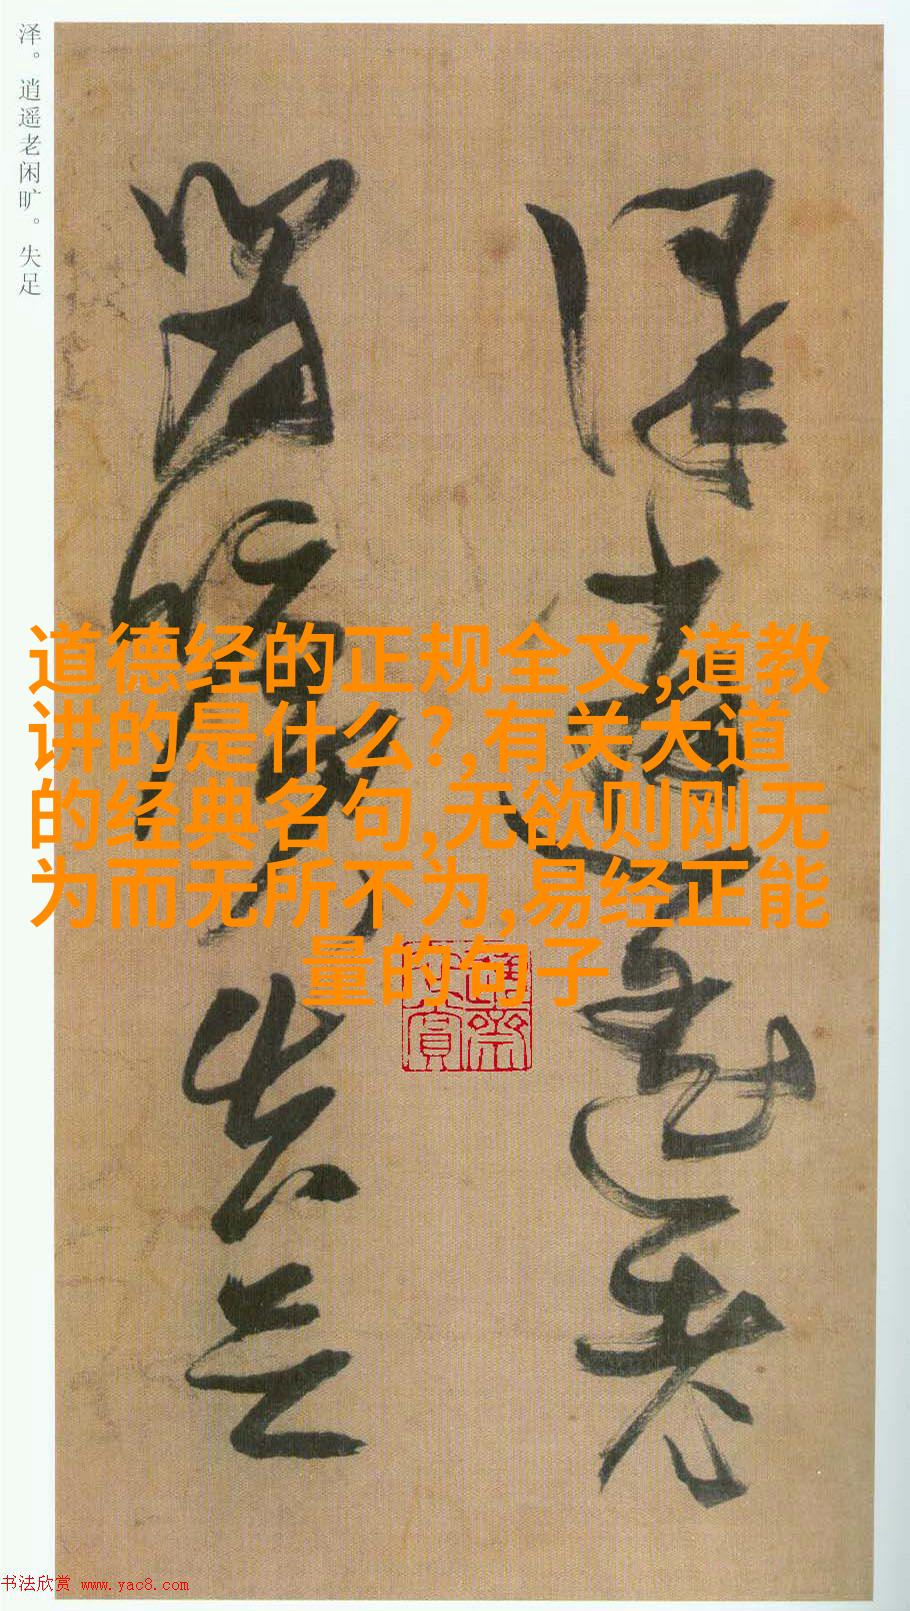 泽。逍遥老闲旷。失足
泽逍遥老
闲旷失足
道德经的正规全文,道教
讲的是什么?,有关大道
的经典名句,无欲则刚无
为而无所不为,易经正能
量的句子
书法欣赏 www.yac8.com